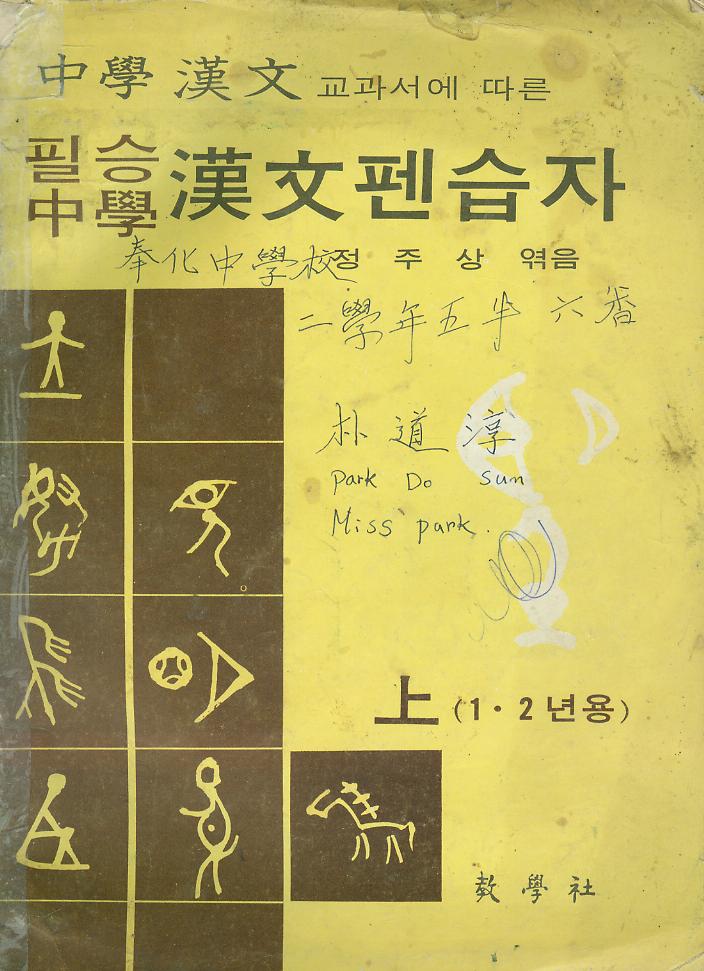 中學 漢文 교과서에 따른
필승
中學 漢文펜습자
奉化中學校 정 주 상 엮음
二學年 五半 六番
朴 道 淳
Park Do Sun
Miss park.
上 (1·2년용)
敎學社